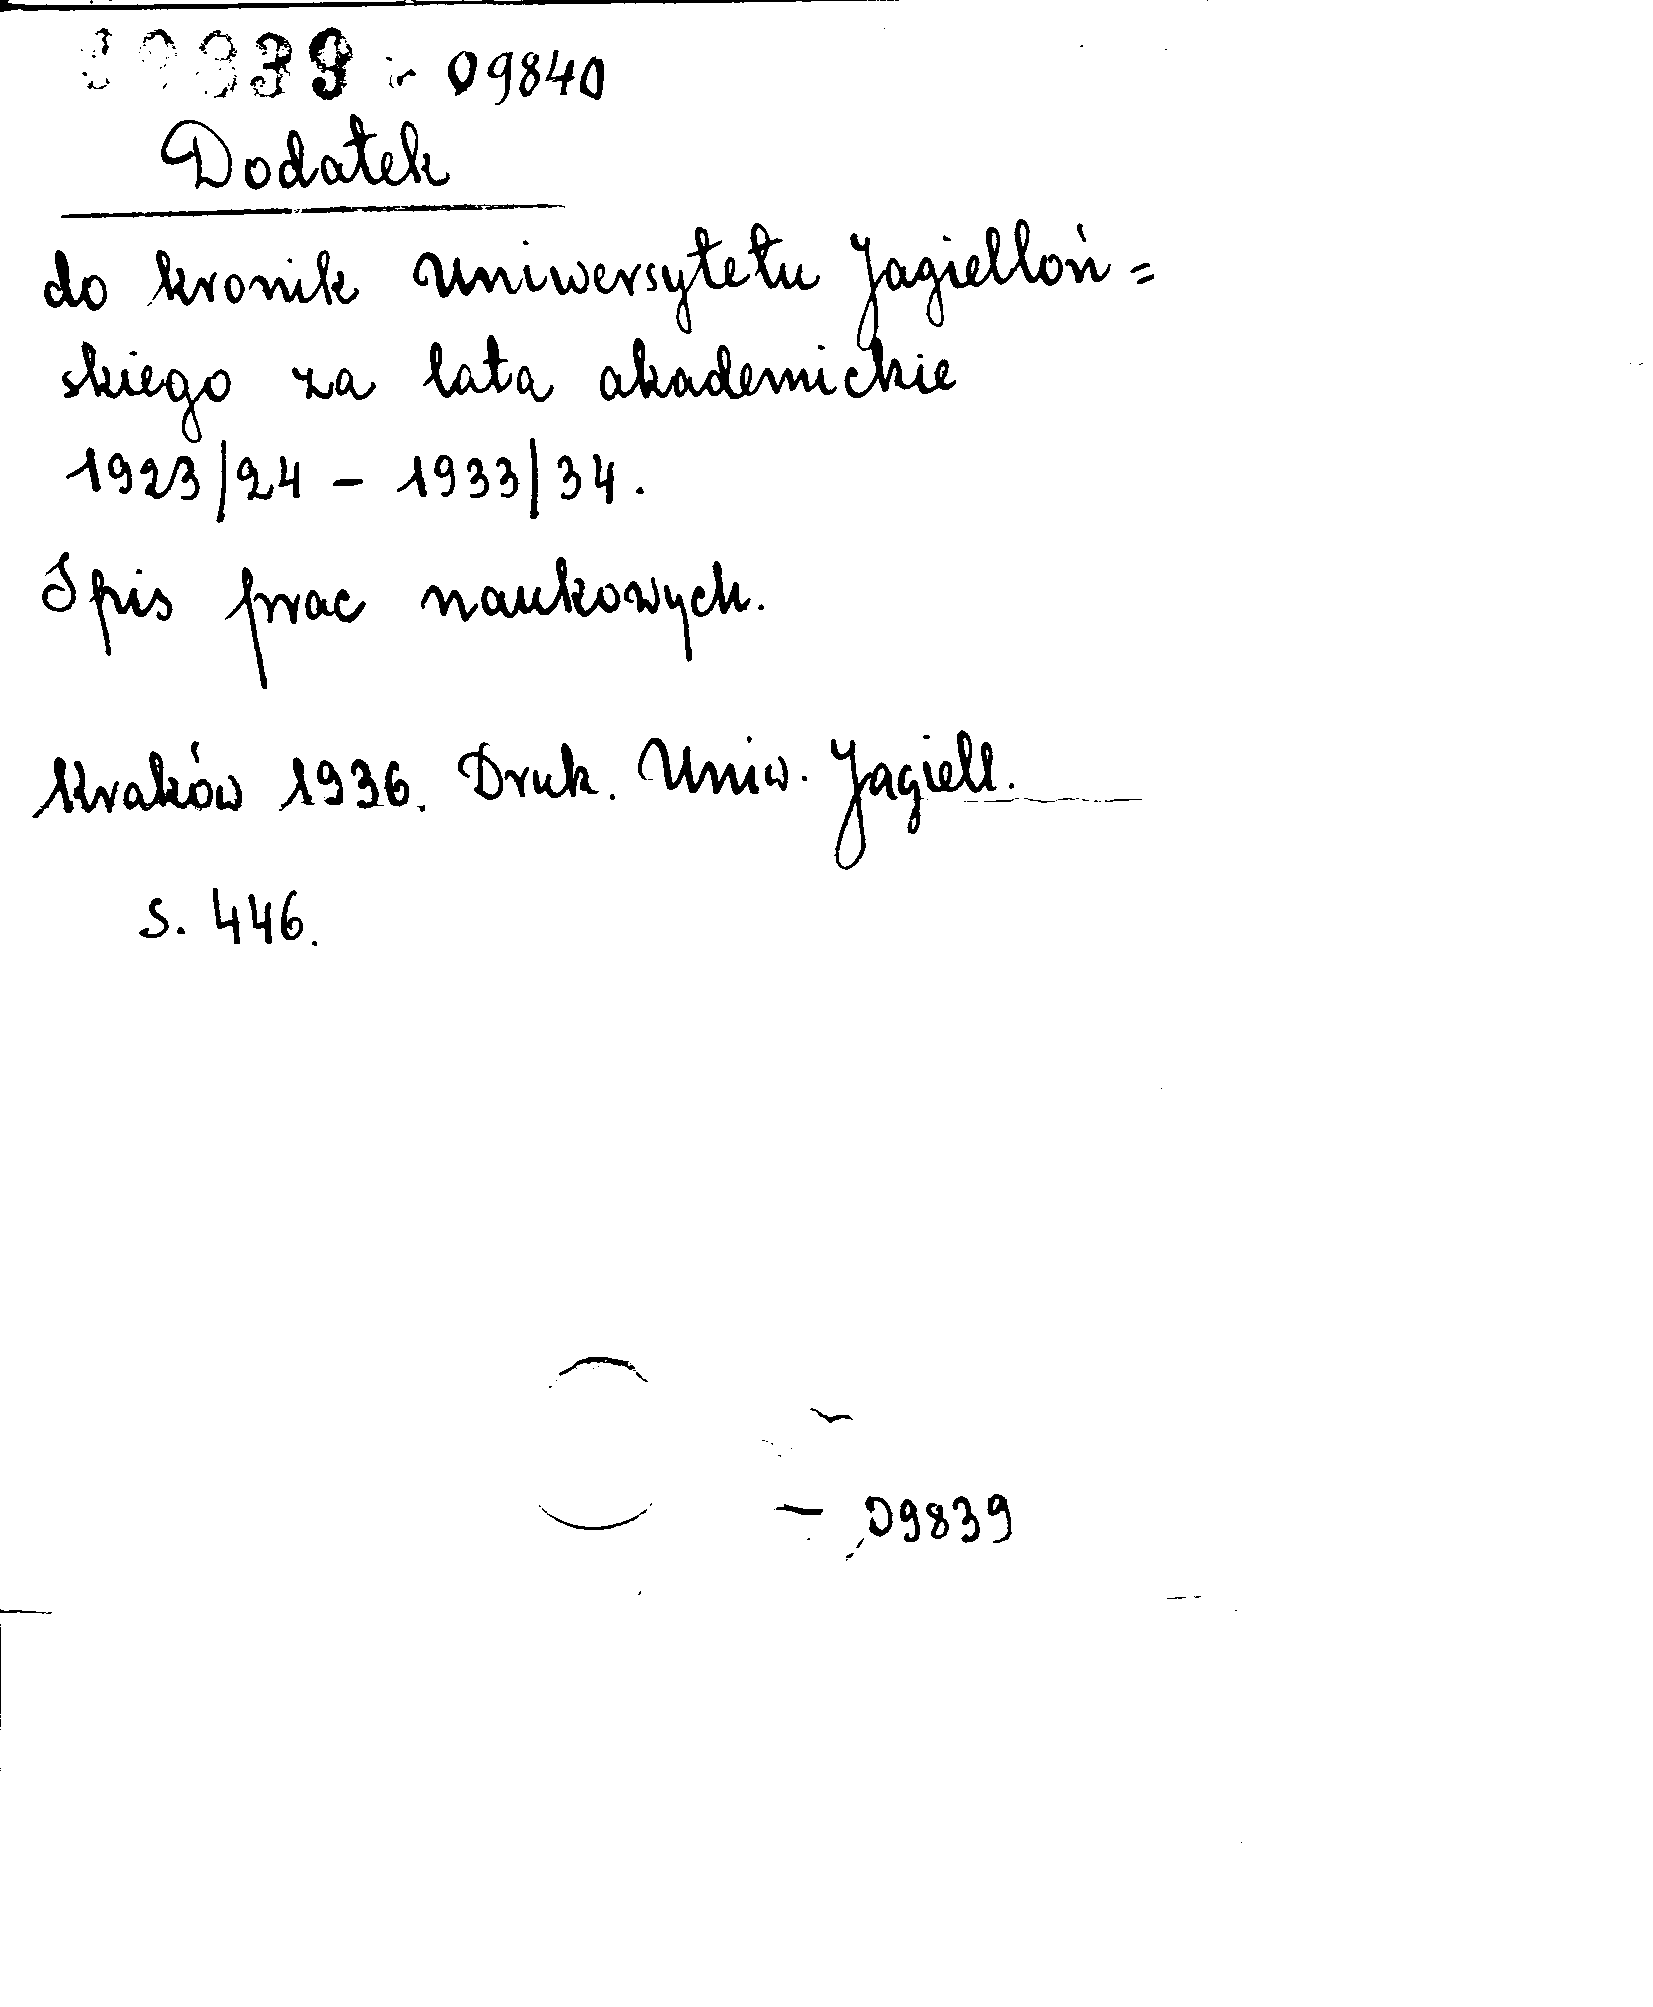 09839 - 09840
Dodatek
do kronik Uniwersytetu Jagielloń=
skiego za lata akademickie
1923/24 - 1933/34.
Spis prac naukowych.
Kraków 1936. Druk. Uniw. Jagiell.
s. 446.
- 09839